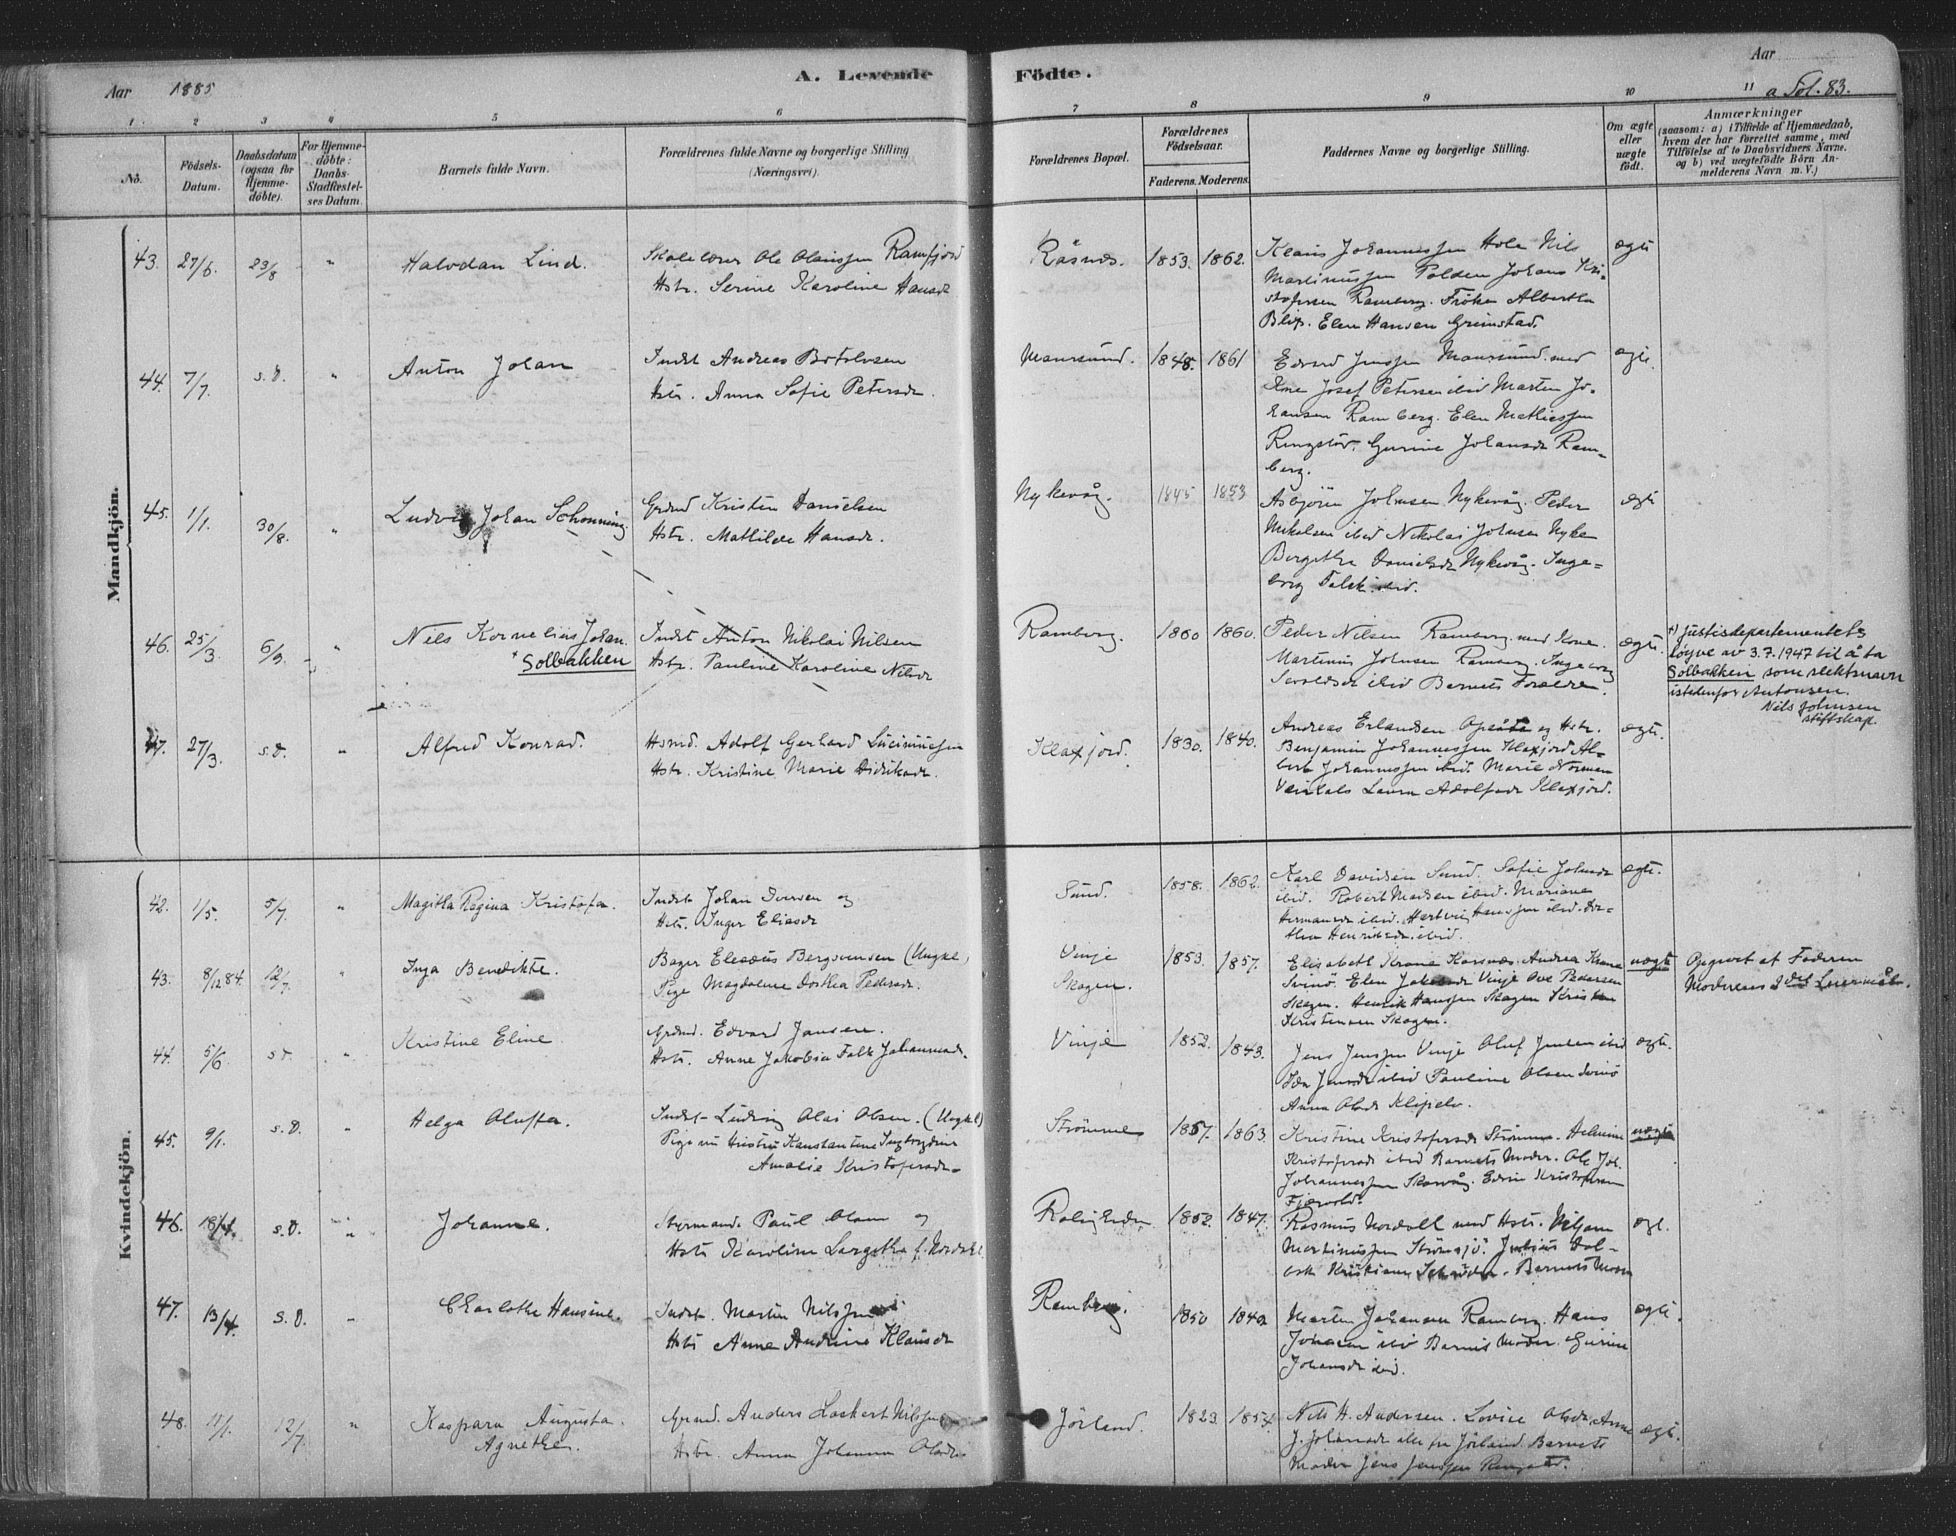 Aar 1885
A. Levende
Födte.
Aar
a Fol. 83.
1 2 3 4 5 6 7 8 9 10 11
No.
Födsels-Datum.
Daabsdatum (ogsaa for Hjemme-döbte).
For Hjemme-döbte: Daabs-Stadfæstel-ses Datum.
Barnets fulde Navn.
Forældrenes fulde Navne og borgerlige Stilling (Næringsvei).
Forældrenes Bopæl.
Forældrenes Födselsaar.
Faderens. Moderens.
Faddernes Navne og borgerlige Stilling.
Om ægte eller uægte født.
Anmærkninger
(saasom: a) i Tilfælde af Hjemmedaab,
hvem der har forrettet samme, med
Tilföielse af to Daabsvidners Navne,
og b) ved uægtefødte Börn An-
melderens Navn m. V.)
Mandkjön.
43. 27/6. 23/8 " Halvdan Lind.
Skolelærer Ole Olaissen Ramfjord
Hstr. Serine Karoline Hansdr
Råsnæs. 1853. 1862.
Klaus Johannessen Hole Nils
Martinussen Polden Johans Kri-
stofersen Ramberg. Frøken Albertha
Blix. Elen Hansen Grimstad.
ægte
44. 7/7. s.D. " Anton Johan
Indst Andreas Botolvsen
Hstr. Anna Sofie Petersdr.
Maursund. 1848. 1861
Edvard Jenssen Maursund med
Kone Josef Petersen ibid Marten Jo-
hansen Ramberg. Elen Mathiessen
Ringstad. Gurine Johansdr Ram-
berg.
ægte.
45. 1/1. 30/8. " Ludvig Johan Schønning
Grdmd Kristen Danielsen
Hstr. Mathilde Hansdr.
Nykevåg. 1845 1853
Asbjørn Johnsen Nykevåg. Peder
Mikalsen ibid Nikolai Johnsen Nyke
Bergithe Danielsdr Nykevåg. Inge-
borg Falck ibid.
ægte
46. 25/3 6/9. " Nils Kornelius Johan.
* Solbakken
Indst Anton Nikolai Nilsen
Hstr. Pauline Karoline Nilsdr
Ramberg. 1860 1860.
Peder Nilsen Ramberg med Kone.
Martinus Johnsen Ramberg. Ingeborg
ibid Barnets Forældre.
ægte.
*) Justisdepartementets
løyve av 3.7.1947 til å ta
Solbakken som slektsnavn
istedenfor Antonsen.
Nils Johnsen
stiftskap.
47. 27/3 s.D. " Alfred Konrad.
Hsmd. Adolf Gerhard
Hstr. Kristine Marie Didriksdr.
Klaxjord. 1830. 1840.
Andreas Erlandsen og Hstr.
Benjamin Johannessen Klaxjord Al-
bert Johannessen ibid. Marie Norman
Laura Adolfsdr Klaxjord.
ægte.
Kvindekjön.
42. 1/5. 5/7. " Magitha Regina Kristofa.
Indst Johan Iversen og
Hstr. Inger Eliasdr
Sund. 1858. 1862.
Karl Davidsen Sund. Sofie Johnsdr
ibid. Robert Madsen ibid. Mariane
Hermansdr ibid. Hartvig Hanssen ibid. Do-
thea Henriksdr ibid.
ægte.
43. 8/12 84. 12/7. " Inga Bendikte.
Bager Eleseus Bergsvensen (Ungkl)
Pige Magdalene Dorthea Pedersdr.
Vinje
Skogen. 1853. 1857.
Elisabeth Krane Andrea Krane
Svinø. Elen Vinje Ove Pedersen
Skogen. Henrik Hanssen Skogen
Kristensen Skogen.
uægte
Opgivet af Faderen
Moderens 2det Leiermål.
44. 5/6. s.D. " Kristine Eline.
Grdmd. Edvard Jansen.
Hstr. Anne Jakobia Falk Johannesdr.
Vinje 1852. 1843.
Jens Jenssen Vinje Oluf Jensen ibid
Jensdr ibid Pauline Olsen Svinø
Anna Olsdr
ægte.
45. 9/1. s.D. " Helga Oluffa.
Indst Ludvig Olai Olsen. (Ungkl)
Pige Konstantine
Amalie Kristofersdr.
Strømme 1857. 1863.
Kristine Kristofersdr Strømme. Helmine
Kristofersdr ibid Barnets Moder. Ole Joh.
Johannessen Skarvåg. Edvin Kristofersen
Fjærvold.
uægte
46. 18/4. s.D. " Johanne.
Styrmand. Paul Olsen og
Hstr Karoline Bergitha f. Nordahl.
1852. 1847.
Rasmus Nordahl med Hstr.
Martinussen
Kristiane Schrøder. Barnets Moder
ægt.
47. 13/4. s.D. " Charlothe Hansine.
Indst. Martin Nilssen
Hstr Anne Andrine Klausdr
Ramberg. 1850 1840
Martin Johansen Ramberg. Hans
Johansen ibid Barnets Moder. Gurine
Johansdr ibid.
ægte.
48. 11/1. 12/7. " Kaspara Augusta
Agnethe.
Grmd. Anders Lockert Nilssen
Hstr. Anna Johanna Olsdr.
Jörland. 1823. 1854.
Nils H. Andersen. Lovise Olsdr. Anne
J. Johansdr alle fra Jörland. Barnets
Moder Jens Jenssen Ringstad.
ægt.